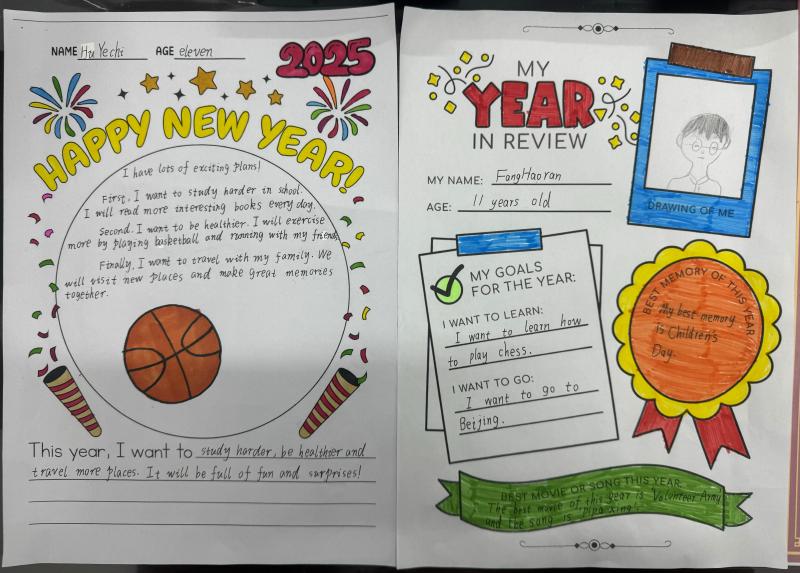 NAME Hu Yechi AGE eleven
2025
HAPPY NEW YEAR!
I have lots of exciting plans!
First, I want to study harder in school.
I will read more interesting books every day.
Second, I want to be healthier. I will exercise
more by playing basketball and running with my friends
Finally, I want to travel with my family. We
will visit new places and make great memories
together.
This year, I want to study harder, be healthier and
travel more places. It will be full of fun and surprises!
MY
YEAR
IN REVIEW
MY NAME: FangHaoran
AGE: 11 years old
DRAWING OF ME
MY GOALS
FOR THE YEAR:
I WANT TO LEARN:
I want to learn how
to play chess.
I WANT TO GO:
I want to go to
Beijing.
BEST MEMORY OF THIS YEAR
My best memory
is Children's
Day.
BEST MOVIE OR SONG THIS YEAR:
The best movie of this year is Volunteer Army
and the song is "pipa xing"